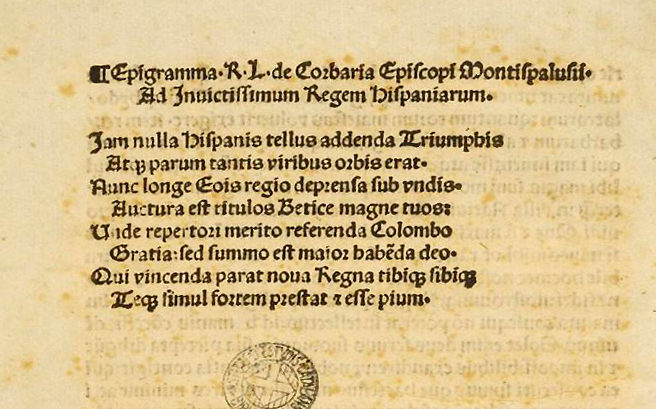 ¶ Epigramma· R· L· de Corbaria Episcopi Montispalusii·
Ad Invictissimum Regem Hispaniarum·
Jam nulla Hispanis tellus addenda Triumphis
Atq3 parum tantis viribus orbis erat·
Nunc longe Eois regio deprensa sub vndis·
Auctura est titulos Betice magne tuos:
Unde repertori merito referenda Colombo
Gratia: sed summo est maior habẽda deo·
Qui vincenda parat noua Regna tibiq3 sibiq3
Teq3 simul fortem prestat ⁊ esse pium·